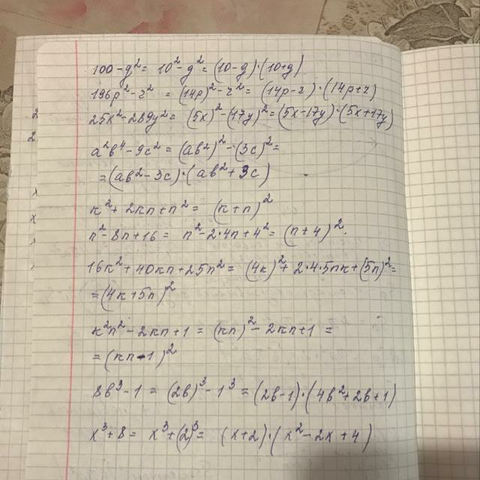 100-g²= 10²-g²=(10-g)·(10+g)
196p²-z²= (14p)²-z²=(14p-z)·(14p+z)
25x²-289y²= (5x)²-(17y)²=(5x-17y)·(5x+17y)
a²b⁴-9c²= (ab²)²-(3c)²=
=(ab²-3c)·(ab²+3c)
к²+2кn+n²= (к+n)²
n²-8n+16= n²-2·4n+4²= (n+4)².
16к²+40кn+25n²= (4к)²+2·4·5nк+(5n)²=
=(4к+5n)²
к²n²-2кn+1= (кn)²-2кn+1=
=(кn-1)²
8b³-1= (2b)³-1³=(2b-1)·(4b²+2b+1)
x³+8= x³+(2)³= (x+2)·(x²-2x+4)